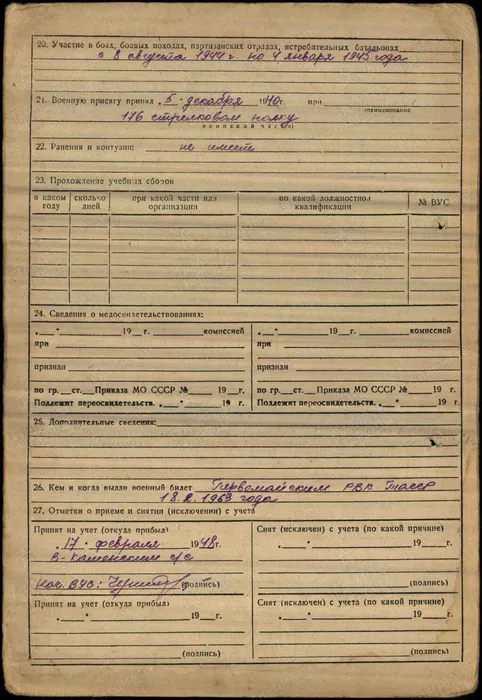 20. Участие в боях, боевых походах, партизанских отрядах, истребительных батальонах
с 8 августа 1944 г. по 4 января 1945 года
21. Военную присягу принял „5“ декабря 1940г. при
(наименование
176 стрелковом полку
воинской части)
22. Ранения и контузии: не имеет
23. Прохождение учебных сборов
в каком году сколько дней при какой части или организации по какой должностной квалификации № ВУС
24. Сведения о медосвидетельствованиях:
„__“ 19 г. комиссией „__“ 19 г. комиссией
при при
признан признан
по гр.__ст.__Приказа МО СССР №__ 19__г. по гр.__ст.__Приказа МО СССР №__ 19__г.
Подлежит переосвидетельств. „__“ 19 г. Подлежит переосвидетельств. „__“ 19 г.
25. Дополнительные сведения:
26. Кем и когда выдан военный билет Первомайским РВК ТАССР
18.2.1963 года
27. Отметки о приеме и снятии (исключении) с учета
Принят на учет (откуда прибыл) Снят (исключен) с учета (по какой причине)
„17“ февраля 1948г. „__“ 19__г.
В-Каменским с/с
Нач. ВУС: (подпись) (подпись)
Принят на учет (откуда прибыл) Снят (исключен) с учета (по какой причине)
„__“ 19__г. „__“ 19__г.
(подпись) (подпись)